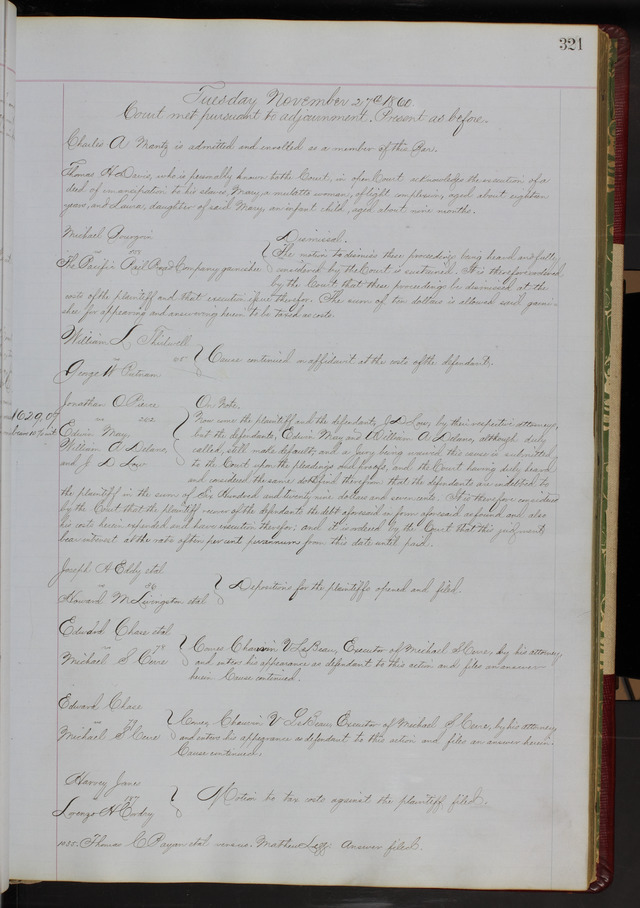 321
Tuesday November 27th 1860.
Court met pursuant to adjournment. Present as before.
Charles A Mantz is admitted and enrolled as a member of this Bar.
Thomas H Davis, who is personally known to the Court, in open Court acknowledges the execution of a
deed of emancipation to his slaves, Mary, a mulatto woman, of light complexion, aged about eighteen
years, and Louisa, daughter of said Mary, an infant child, aged about nine months.
Michael
vs
The Pacific Rail Road Company garnishee
Dismissal.
The motion to dismiss these proceedings being heard and fully
considered by the Court is sustained. It is therefore ordered
by the Court that these proceedings be dismissed at the
costs of the plaintiff and that execution issue therefor. The sum of ten dollars is allowed said garni-
shee for appearing and answering herein to be taxed as costs.
William L Thidwell
vs
George W Putnam
Cause continued on affidavit at the costs of the defendant.
Jonathan O Pierce
vs 202
Edwin May,
William A Delano,
and J D Low
$629.07
On Note.
Now come the plaintiff and the defendant, J D Low, by their respective attorneys,
but the defendants, Edwin May and William A Delano, although duly
called, still make default, and a jury being waived this cause is submitted
to the Court upon the pleadings and proofs, and the Court having duly heard
and considered the same doth find therefrom that the defendants are indebted to
the plaintiff in the sum of Six Hundred and twenty nine dollars and seven cents. It is therefore considered
by the Court that the plaintiff recover of the defendants the debt aforesaid in form aforesaid so found and also
his costs herein expended and have execution therefor; and it is ordered by the Court that this judgment
bear interest at the rate of ten per cent per annum from this date until paid.
Joseph H Eddy etal
vs 36
Howard McLivingston etal
Depositions for the plaintiffs opened and filed.
Edward Chase etal
vs 74
Michael S Cerre
Comes Chauvin V LaBeau, Executor of Michael S Cerre, by his attorney,
and enters his appearance as defendant to this action and files an answer
herein. Cause continued.
Edward Chase
vs 73
Michael S Cerre
Comes Chauvin V LaBeau, Executor of Michael S Cerre, by his attorney
and enters his appearance as defendant to this action and files an answer herein.
Cause continued.
Harvey Jane
vs 187
Lorenzo H
Motion to tax costs against the plaintiff filed.
Thomas C Payan etal versus Mathew Answer filed.